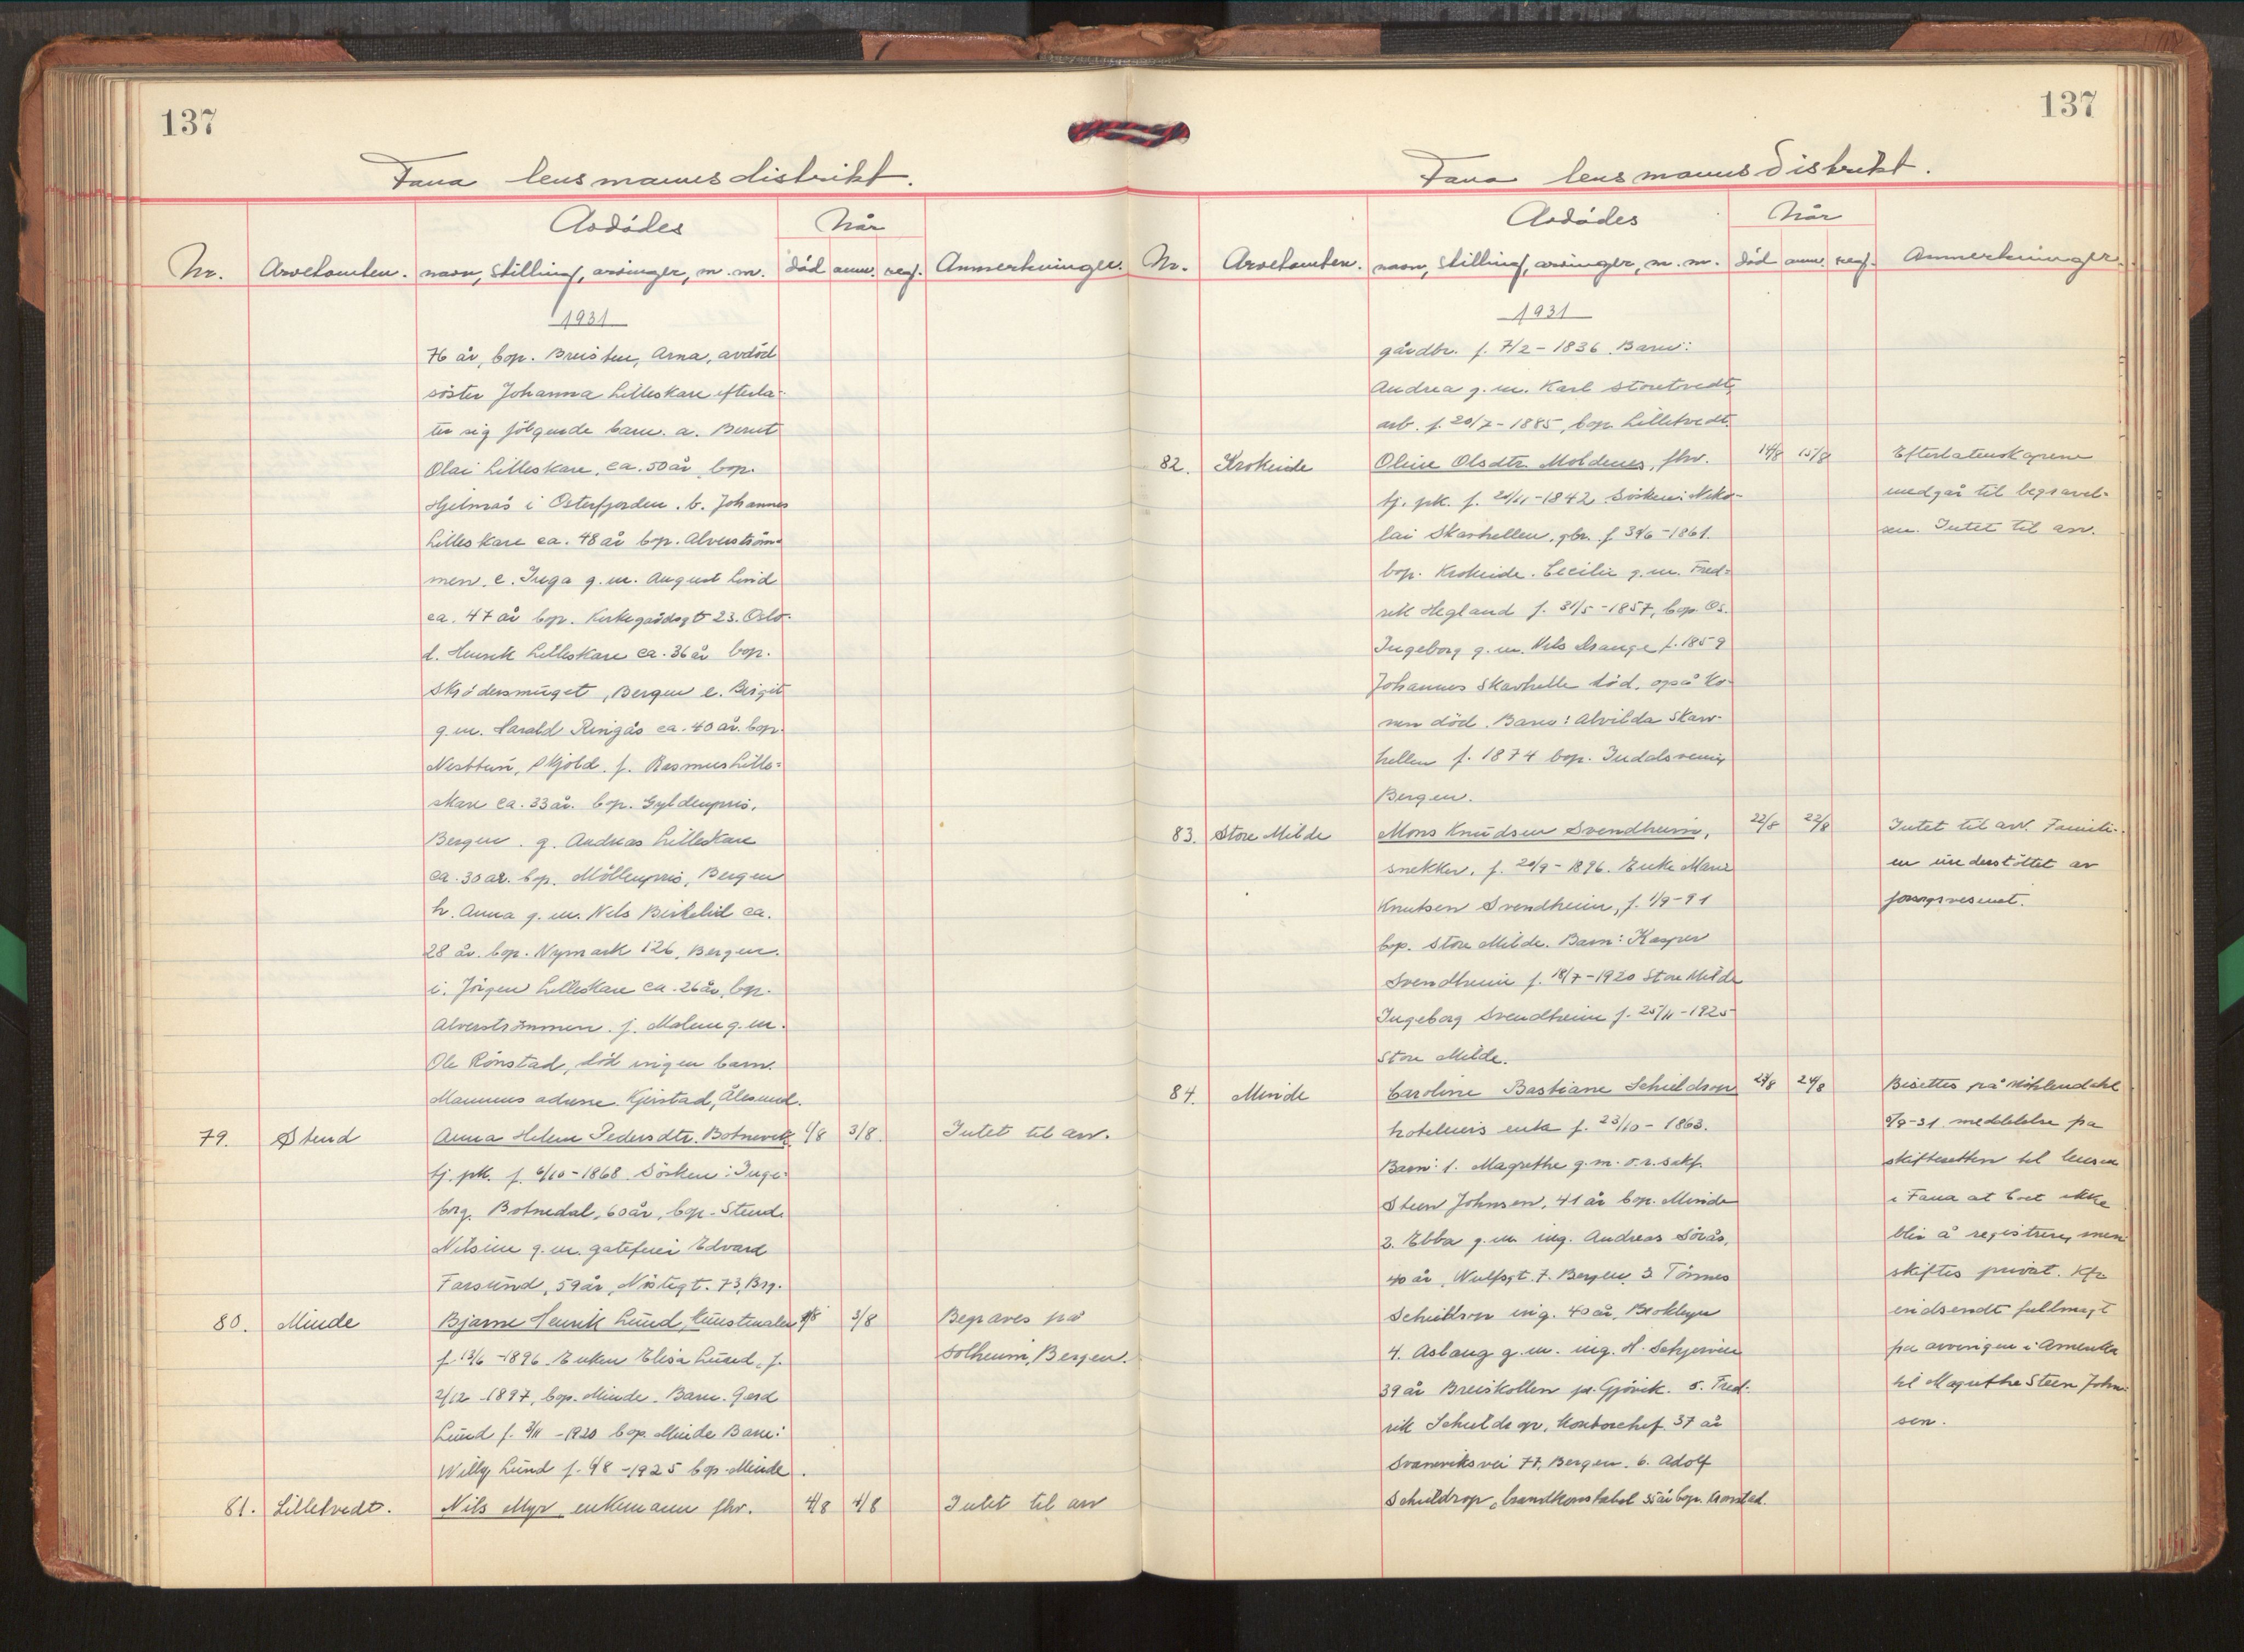 137
Fana lensmannsdistrikt.
Avdødes
Når
Nr. Arvetomten. navn, stilling, arvinger, m. m. død anm. regf. Anmerkninger.
1931
76 år, bop. Breisten, Arna, avdöd
söster Johanna Lilleskare efterla-
ter sig fölgende barn. a. Bernt
Olai Lilleskare, ca. 50 år, bop.
Hjelmås i Osterfjorden. b. Johannes
Lilleskare ca. 48 år bop. Alverström-
men. c. Inga g. m. August Lind
ca. 47 år bop. Kirkegårdsgt 23. Oslo.
d. Henrik Lilleskare ca. 36 år bop.
Skrödersmuget, Bergen e. Birgit
g. m. Harald Ringås ca. 40 år. bop.
Nesttun, Skjold. f. Rasmus Lille-
skare ca. 33 år. bop. Gyldenpris,
Bergen. g. Andreas Lilleskare
ca. 30 år. bop. Möllenpris, Bergen
h. Anna g. m. Nils Birkelid ca.
28 år. bop. Nymark 126, Bergen.
i. Jörgen Lilleskare ca. 26 år, bop.
Alverströmmen. j. Malene g. m.
Ole Rönstad, död ingen barn.
Mannens adresse Gjerstad, Ålesund.
79. Stend Anna Helene Pedersdtr. Botnevik 1/8 3/8. Intet til arv.
tj. pk. f. 6/10-1868 Sösken: Inge-
borg Botnedal, 60 år, bop. Stend.
Nilsine g. m. gatefeier Edvard
Farsund, 59 år, Nöstegt. 73, Brg.
80. Minde Bjarne Henrik Lund, kunstmaler 1/8 3/8 Begraves på
f. 13/6-1896 Enken Elisa Lund, f. Solheim, Bergen.
2/12 1897, bop. Minde. Barn. Gerd
Lund f. 3/11-1920 bop. Minde Barn:
Willy Lund f. 4/8-1925 bop. Minde.
81. Lilletvedt. Nils Myr enkemann fhv. 4/8 4/8 Intet til arv
137
Fana lensmannsdistrikt.
Avdødes
Når
Nr. Arvetomten. navn, stilling, arvinger, m. m. død anm. regf. Anmerkninger.
1931
gårdbr. f. 7/2-1836. Barn:
Andrea g. m. Karl Storetvedt,
arb. f. 20/7-1885, bop. Lilletvedt.
82. Krokeide Oline Olsdtr. Moldenes, fhv. 14/8 15/8 Efterlatenskapene
tj. pk. f. 20/11-1842. Sösken: Niko- medgår til begravel-
lai Skarhellen, gbr. f 30/6-1861. sen. Intet til arv.
bop. Krokeide. Cecilie g. m. Fred-
rik Hegland f. 31/5-1857, bop. Os.
Ingeborg g. m. Nils Drange f. 1859
Johannes Skarhelle död, også ko-
nen död. Barn: Alvilda Skar-
hellen f. 1874 bop. Indalsveien
Bergen.
83. Store Milde Mons Knudsen Svendheim, 22/8 22/8 Intet til arv. Famili-
snekker. f. 20/9-1896. Enke Marie en understöttet av
Knutsen Svendheim, f. 1/9-91 forsorgsvesenet.
bop. Store Milde. Barn: Kasper
Svendheim f. 18/7-1920 Store Milde
Ingeborg Svendheim f. 25/11-1925
Store Milde.
84. Minde Caroline Bastiane Schieldrop 24/8 24/8 Bisettes på Möhlendahl
hoteleiers enke f. 23/10-1863. -31. meddelelse fra
Barn: 1. Magrethe g. m. o.r.sakf. skifteretten til lensm
Steen Johnsen, 41 år bop. Minde i Fana at boet ikke
2. Ebba g. m. ing. Andreas Sörås, blir å registrere, men
40 år, Wulfsgt. 7. Bergen 3. Tönnes skiftes privat.
Schieldrop ing. 40 år, Brooklyn indsendt fullmagt
4. Aslaug g. m. ing. H. Schjerven fra arvingen i Amerika
39 år Breiskollen pr. Gjövik. 5. Fred- til Magrethe Steen John-
rik Schieldrop, kontorchef 37 år sen.
Svaneviksvei 77, Bergen. 6. Adolf
Schieldrop, brandkonstabel 35 år bop. Kronstad.